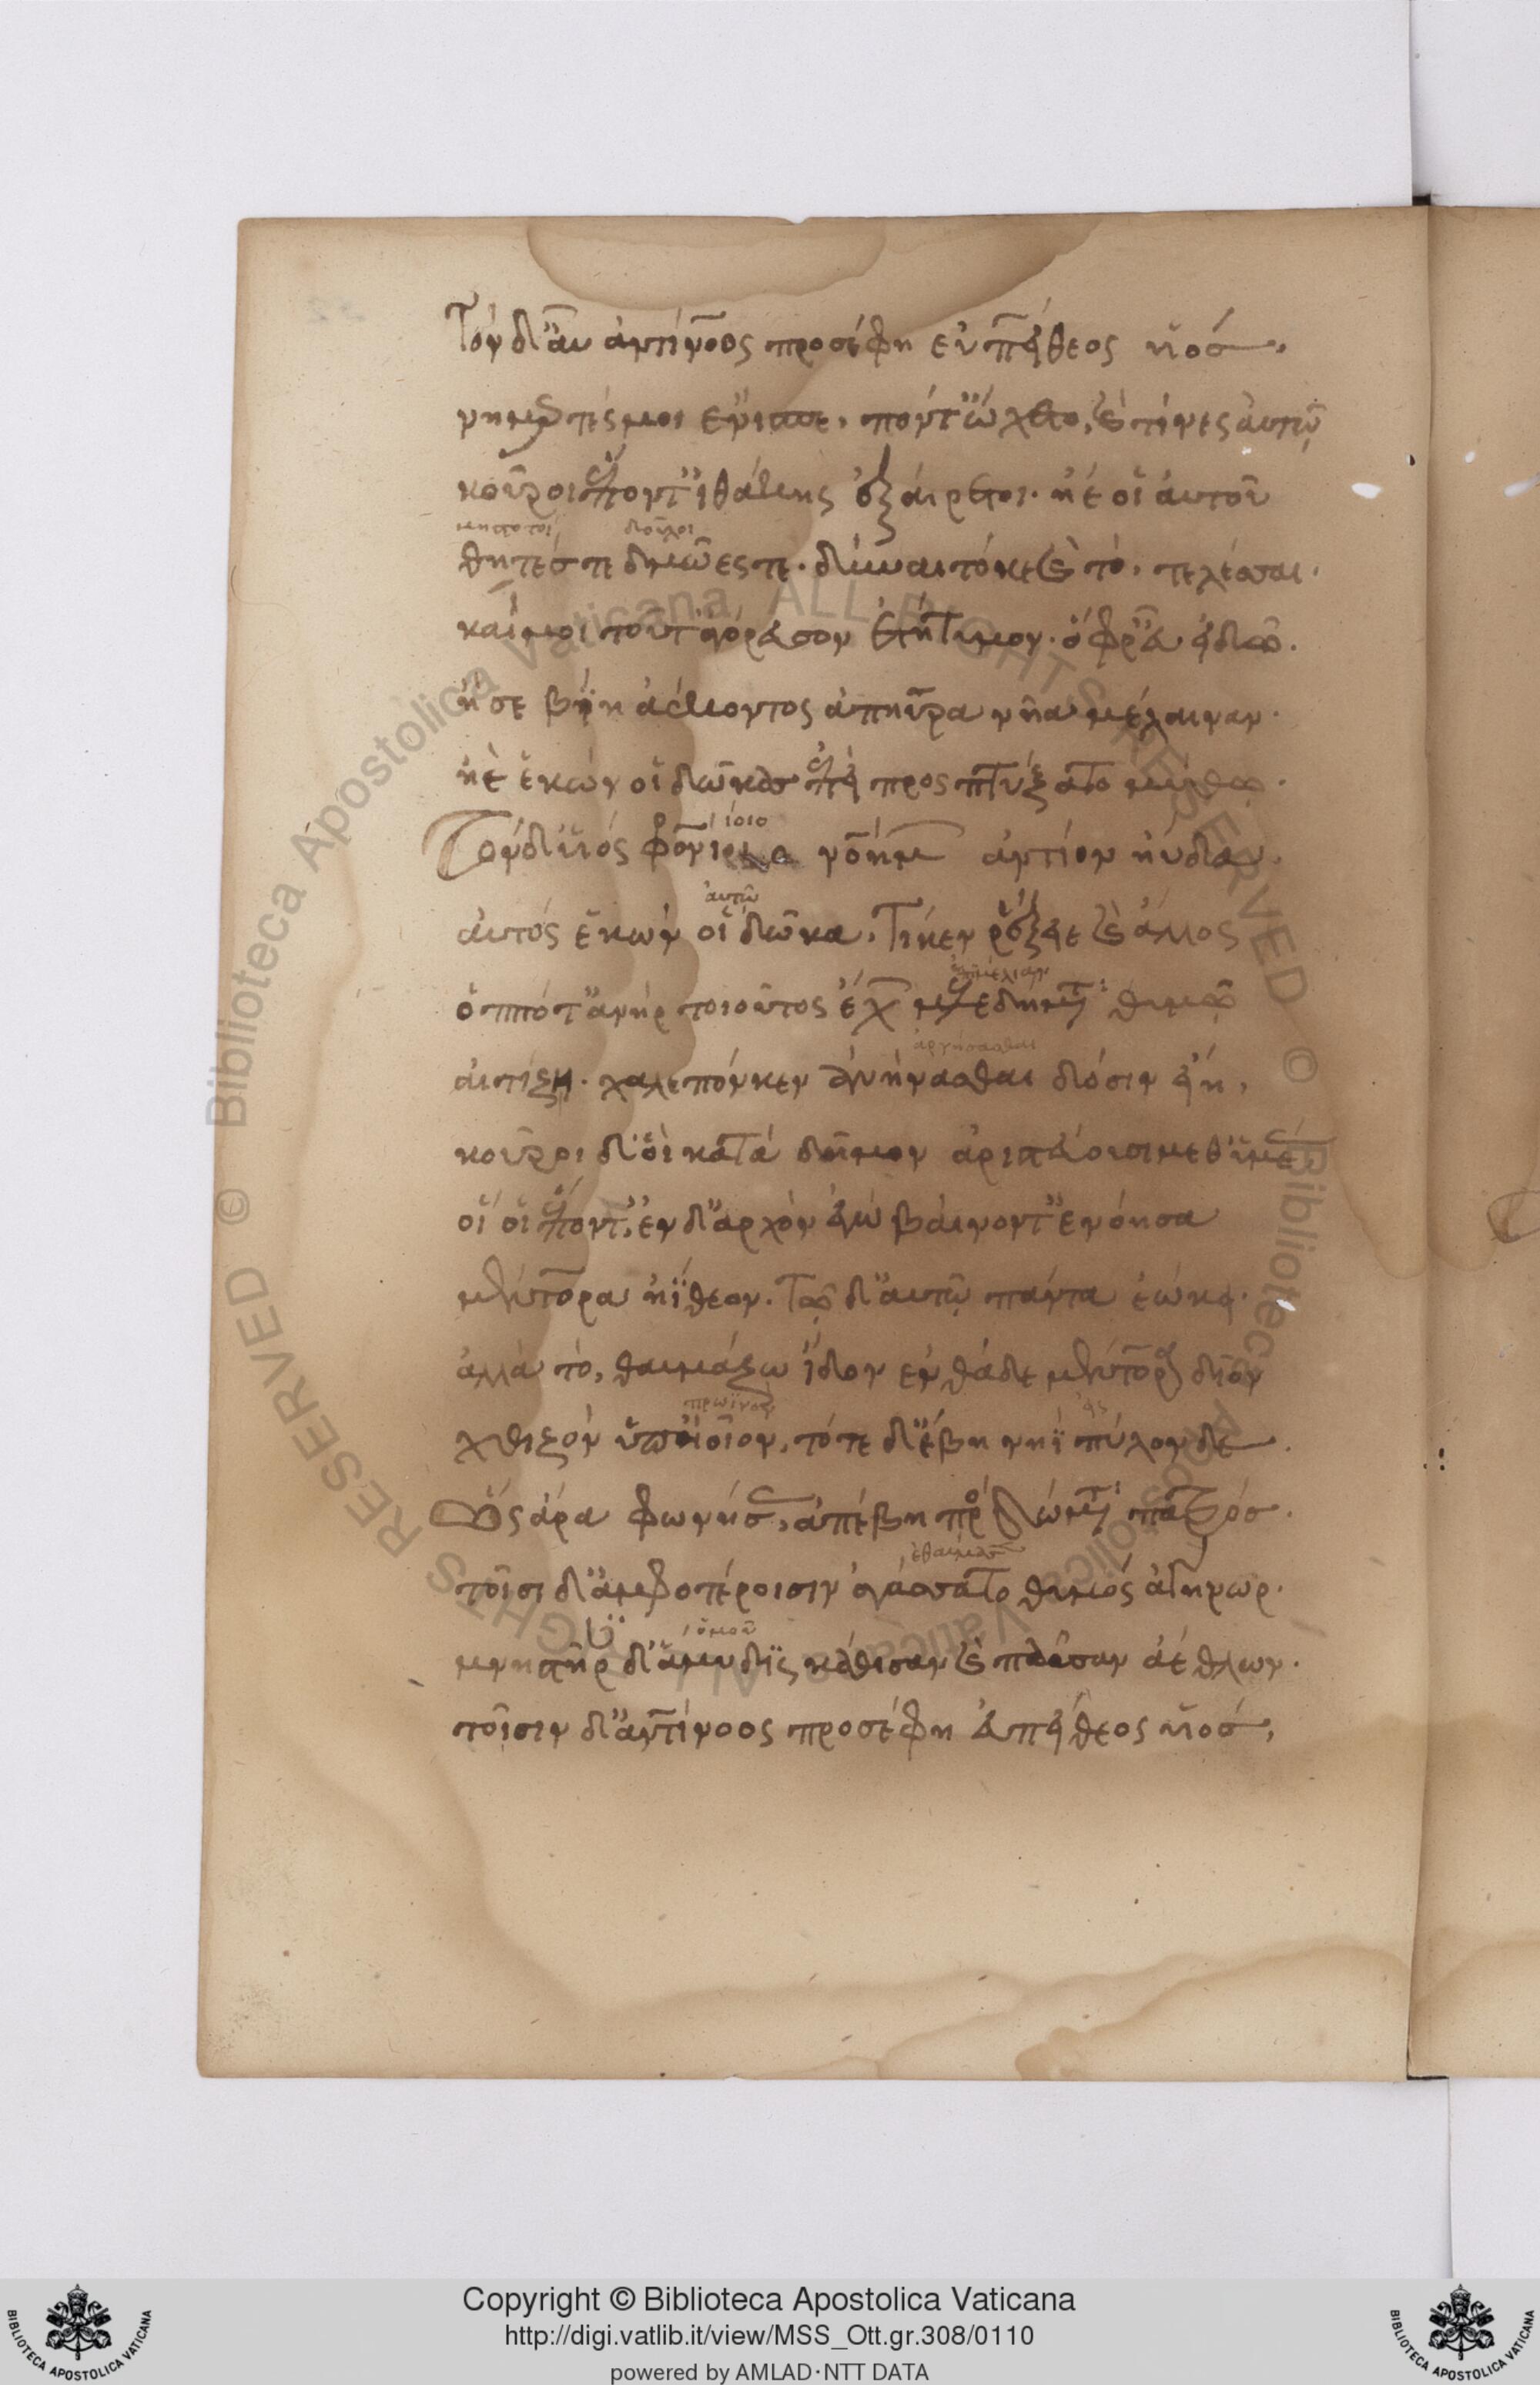 Τὸν δ' αὖ ἀντίνοος προσέφη εὐπείθεος υἱός,
νημερτές μοι ἔνισπε, πότ' ὤχετο, καὶ τίνες αὐτῷ
κοῦροι ἕποντ' ἰθάκης ἐξαίρετοι· ἠέ οἱ αὐτοῦ
δοῦλοι
θῆτές τε δμῶές τε· δύναιτό κε καὶ τὸ τελέσσαι·
καί μοι τοῦτ' ἀγόρευσον ἐτήτυμον· ὄφρ' εὖ εἰδῶ.
ἤ σε βίῃ ἀέκοντος ἀπηύρα νῆα μέλαιναν·
ἠὲ ἑκών οἱ δῶκας ἐπεὶ προσπτύξατο μύθῳ.
ιοιο
Τὸν δ' υἱὸς φρονίοιο νοήμων ἀντίον ηὔδα·
αὐτῶ
αὐτὸς ἑκών οἱ δῶκα· τί κεν ῥέξειε καὶ ἄλλος
ὁππότ' ἀνὴρ τοιοῦτος ἔχων μελεδήματα θυμῷ
ἀρνήσασθαι
αἰτίζῃ· χαλεπόν κεν ἀνήνασθαι δόσιν εἴη,
κοῦροι δ' οἳ κατὰ δῆμον ἀριστεύουσι μεθ' ἡμέας
οἵ οἱ ἕποντ', ἐν δ' ἀρχὸν ἐγὼ βαίνοντ' ἐνόησα
μέντορα ἠὲ θεόν· τῷ δ' αὐτῷ πάντα ἐῴκει·
ἀλλὰ τὸ θαυμάζω ἴδον ἐνθάδε μέντορα δῖον
πρωϊνὸν εἰς
χθιζὸν ὑπηοῖον, τότε δ' ἔβη νηῒ πύλον δε.
Ὣς ἄρα φωνήσας, ἀπέβη πρὸς δώματα πατρός.
ἐθαύμασεν
τοῖσι δ' ἀμφοτέροισιν ἀγάσσατο θυμὸς ἀγήνωρ.
ὁμοῦ
μνηστῆρες δ' ἄμυδις κάθισαν καὶ παῦσαν ἀέθλων.
τοῖσιν δ' ἀντίνοος προσέφη εὐπείθεος υἱός,
Copyright © Biblioteca Apostolica Vaticana
http://digi.vatlib.it/view/MSS_Ott.gr.308/0110
powered by AMLAD·NTT DATA
BIBLIOTECA APOSTOLICA VATICANA
BIBLIOTECA APOSTOLICA VATICANA
Biblioteca Apostolica Vaticana ALL RIGHTS RESERVED ©